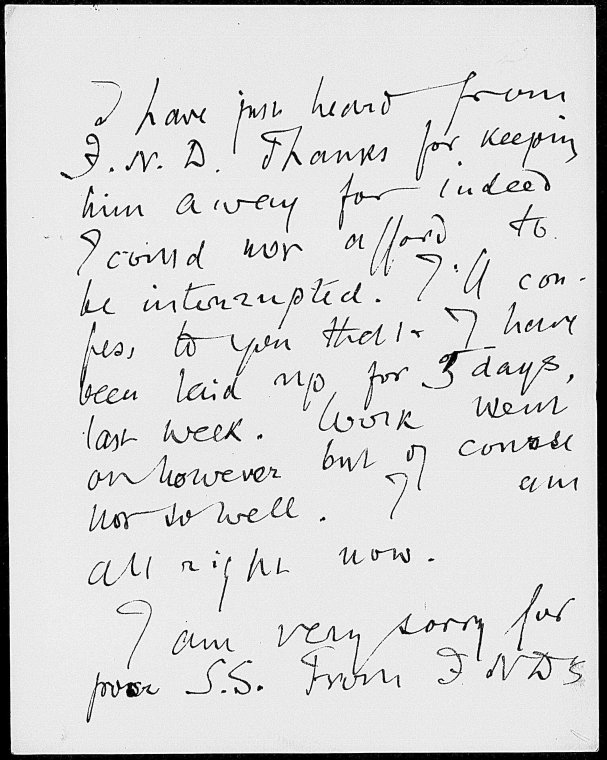 I have just heard from
F.N.D. Thanks for keeping
him away for indeed
I could not afford to
be interrupted. I'll con-
fess to you that I have
been laid up for 3 days,
last week. Work went
on however but of course
not so well. I am
all right now.
I am very sorry for
poor S.S. From F N D's